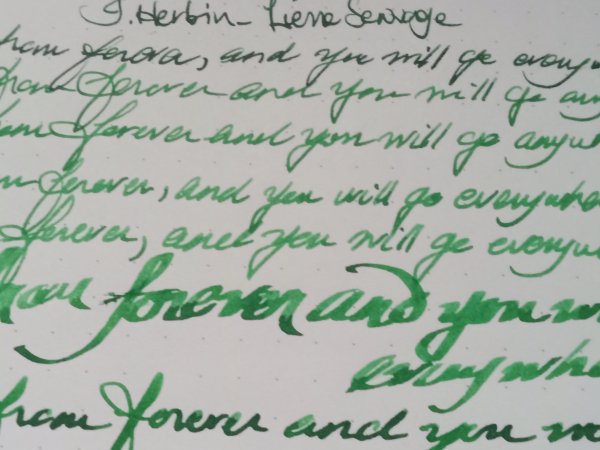 J. Herbin - Lierre Sauvage
from forever, and you will go everyw
from forever and you will go any
from forever and you will go anyw
forever, and you will go everywhere
forever, and you will go everyw
from forever and you w
everywhe
from forever and you w